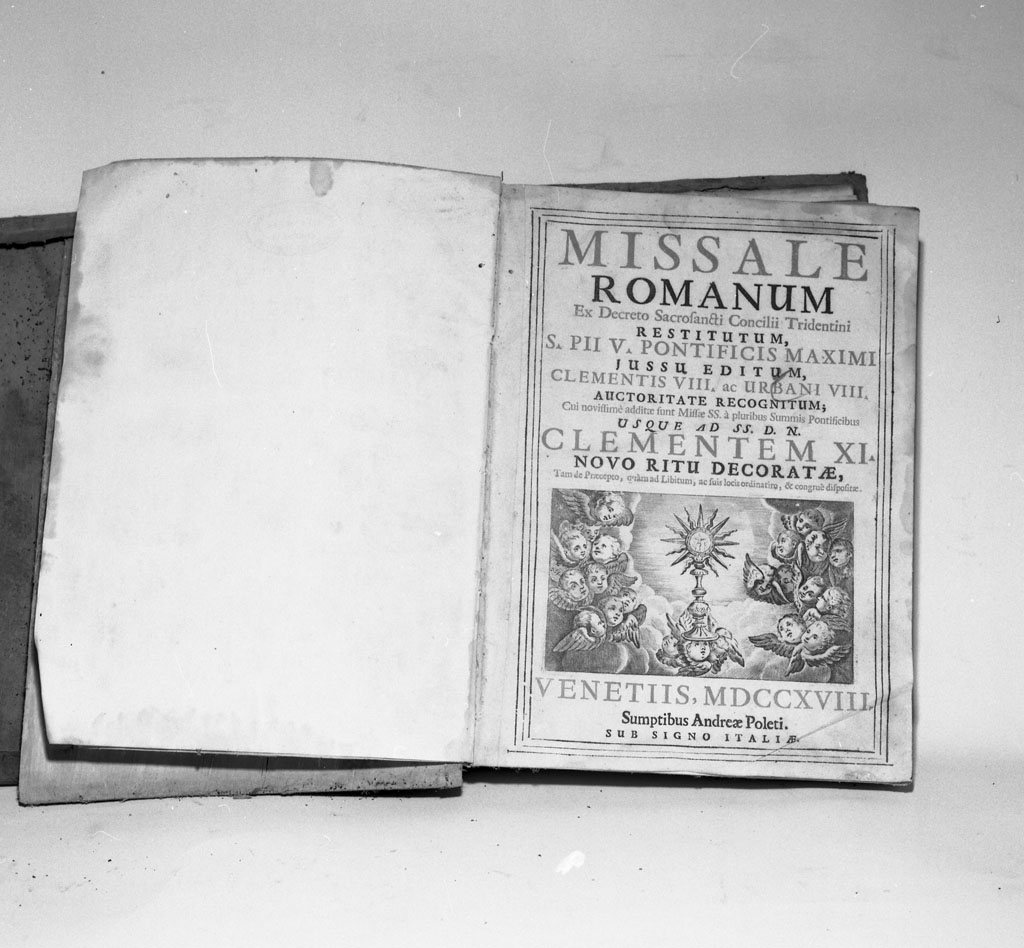 MISSALE
ROMANUM
Ex Decreto Sacrosancti Concilii Tridentini
RESTITUTUM,
S. PII V. PONTIFICIS MAXIMI
JUSSU EDITUM,
CLEMENTIS VIII. ac URBANI VIII.
AUCTORITATE RECOGNITUM;
Cui novissimè additæ sunt Missæ SS. à pluribus Summis Pontificibus
USQUE AD SS. D. N.
CLEMENTEM XI.
NOVO RITU DECORATÆ,
Tam de Præcepto, quàm ad Libitum, ac suis locis ordinatim, & congruè dispositæ.
VENETIIS, MDCCXVIII.
Sumptibus Andreæ Poleti.
SUB SIGNO ITALIÆ.